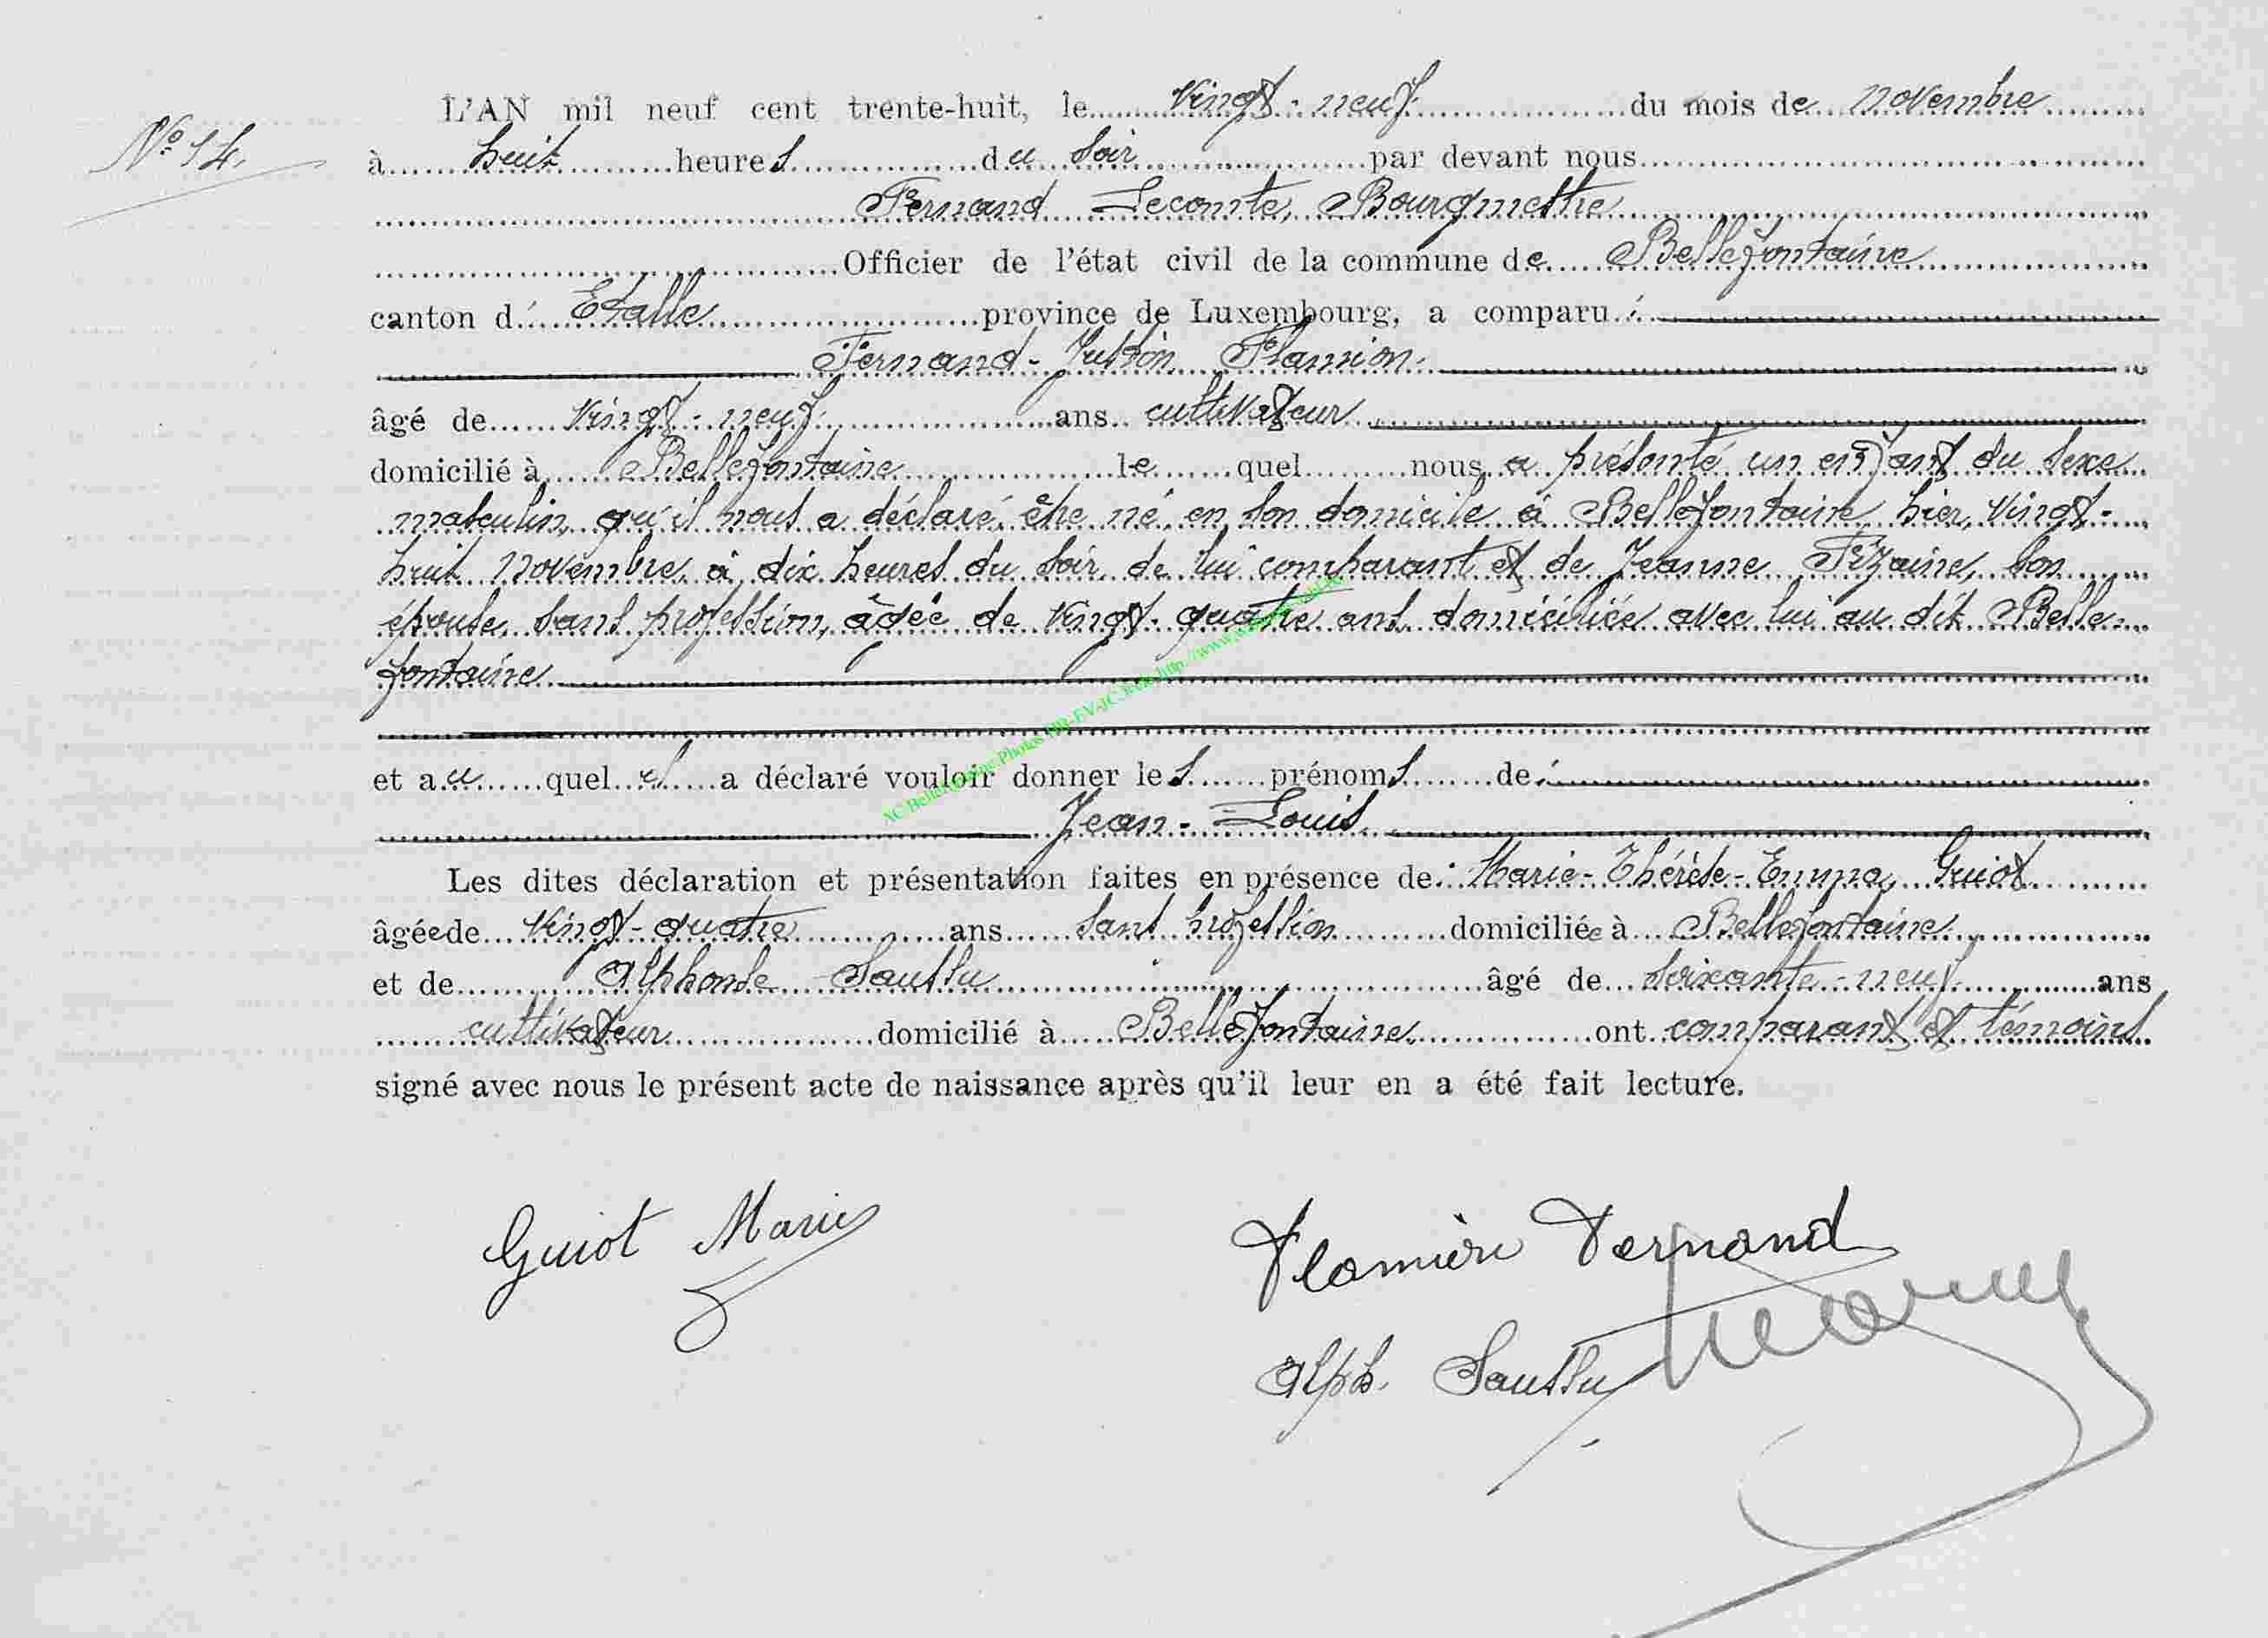 N° 14.
L'AN mil neuf cent trente-huit, le vingt-neuf du mois de novembre
à huit heures du soir par devant nous
Fernand Lecomte, Bourgmestre
Officier de l'état civil de la commune de Bellefontaine
canton d' Etalle province de Luxembourg, a comparu :
Fernand-Justin Flamion.
âgé de vingt-neuf ans cultivateur
domicilié à Bellefontaine lequel nous a présenté un enfant du sexe
masculin, qu'il nous a déclaré être né en son domicile à Bellefontaine hier, vingt-
huit novembre, à dix heures du soir, de lui comparant et de Jeanne Fizaine, son
épouse, sans profession, âgée de vingt-quatre ans domiciliée avec lui au dit Belle-
fontaine
et auquel il a déclaré vouloir donner les prénoms de :
Jean-Louis
Les dites déclaration et présentation faites en présence de : Marie-Thérèse-Emma Guiot
âgée de vingt-quatre ans sans profession domiciliée à Bellefontaine
et de Alphonse Saussu âgé de soixante-neuf ans
cultivateur domicilié à Bellefontaine ont comparant et témoins
signé avec nous le présent acte de naissance après qu'il leur en a été fait lecture.
Guiot Marie
Flamion Fernand
Alph. Saussu